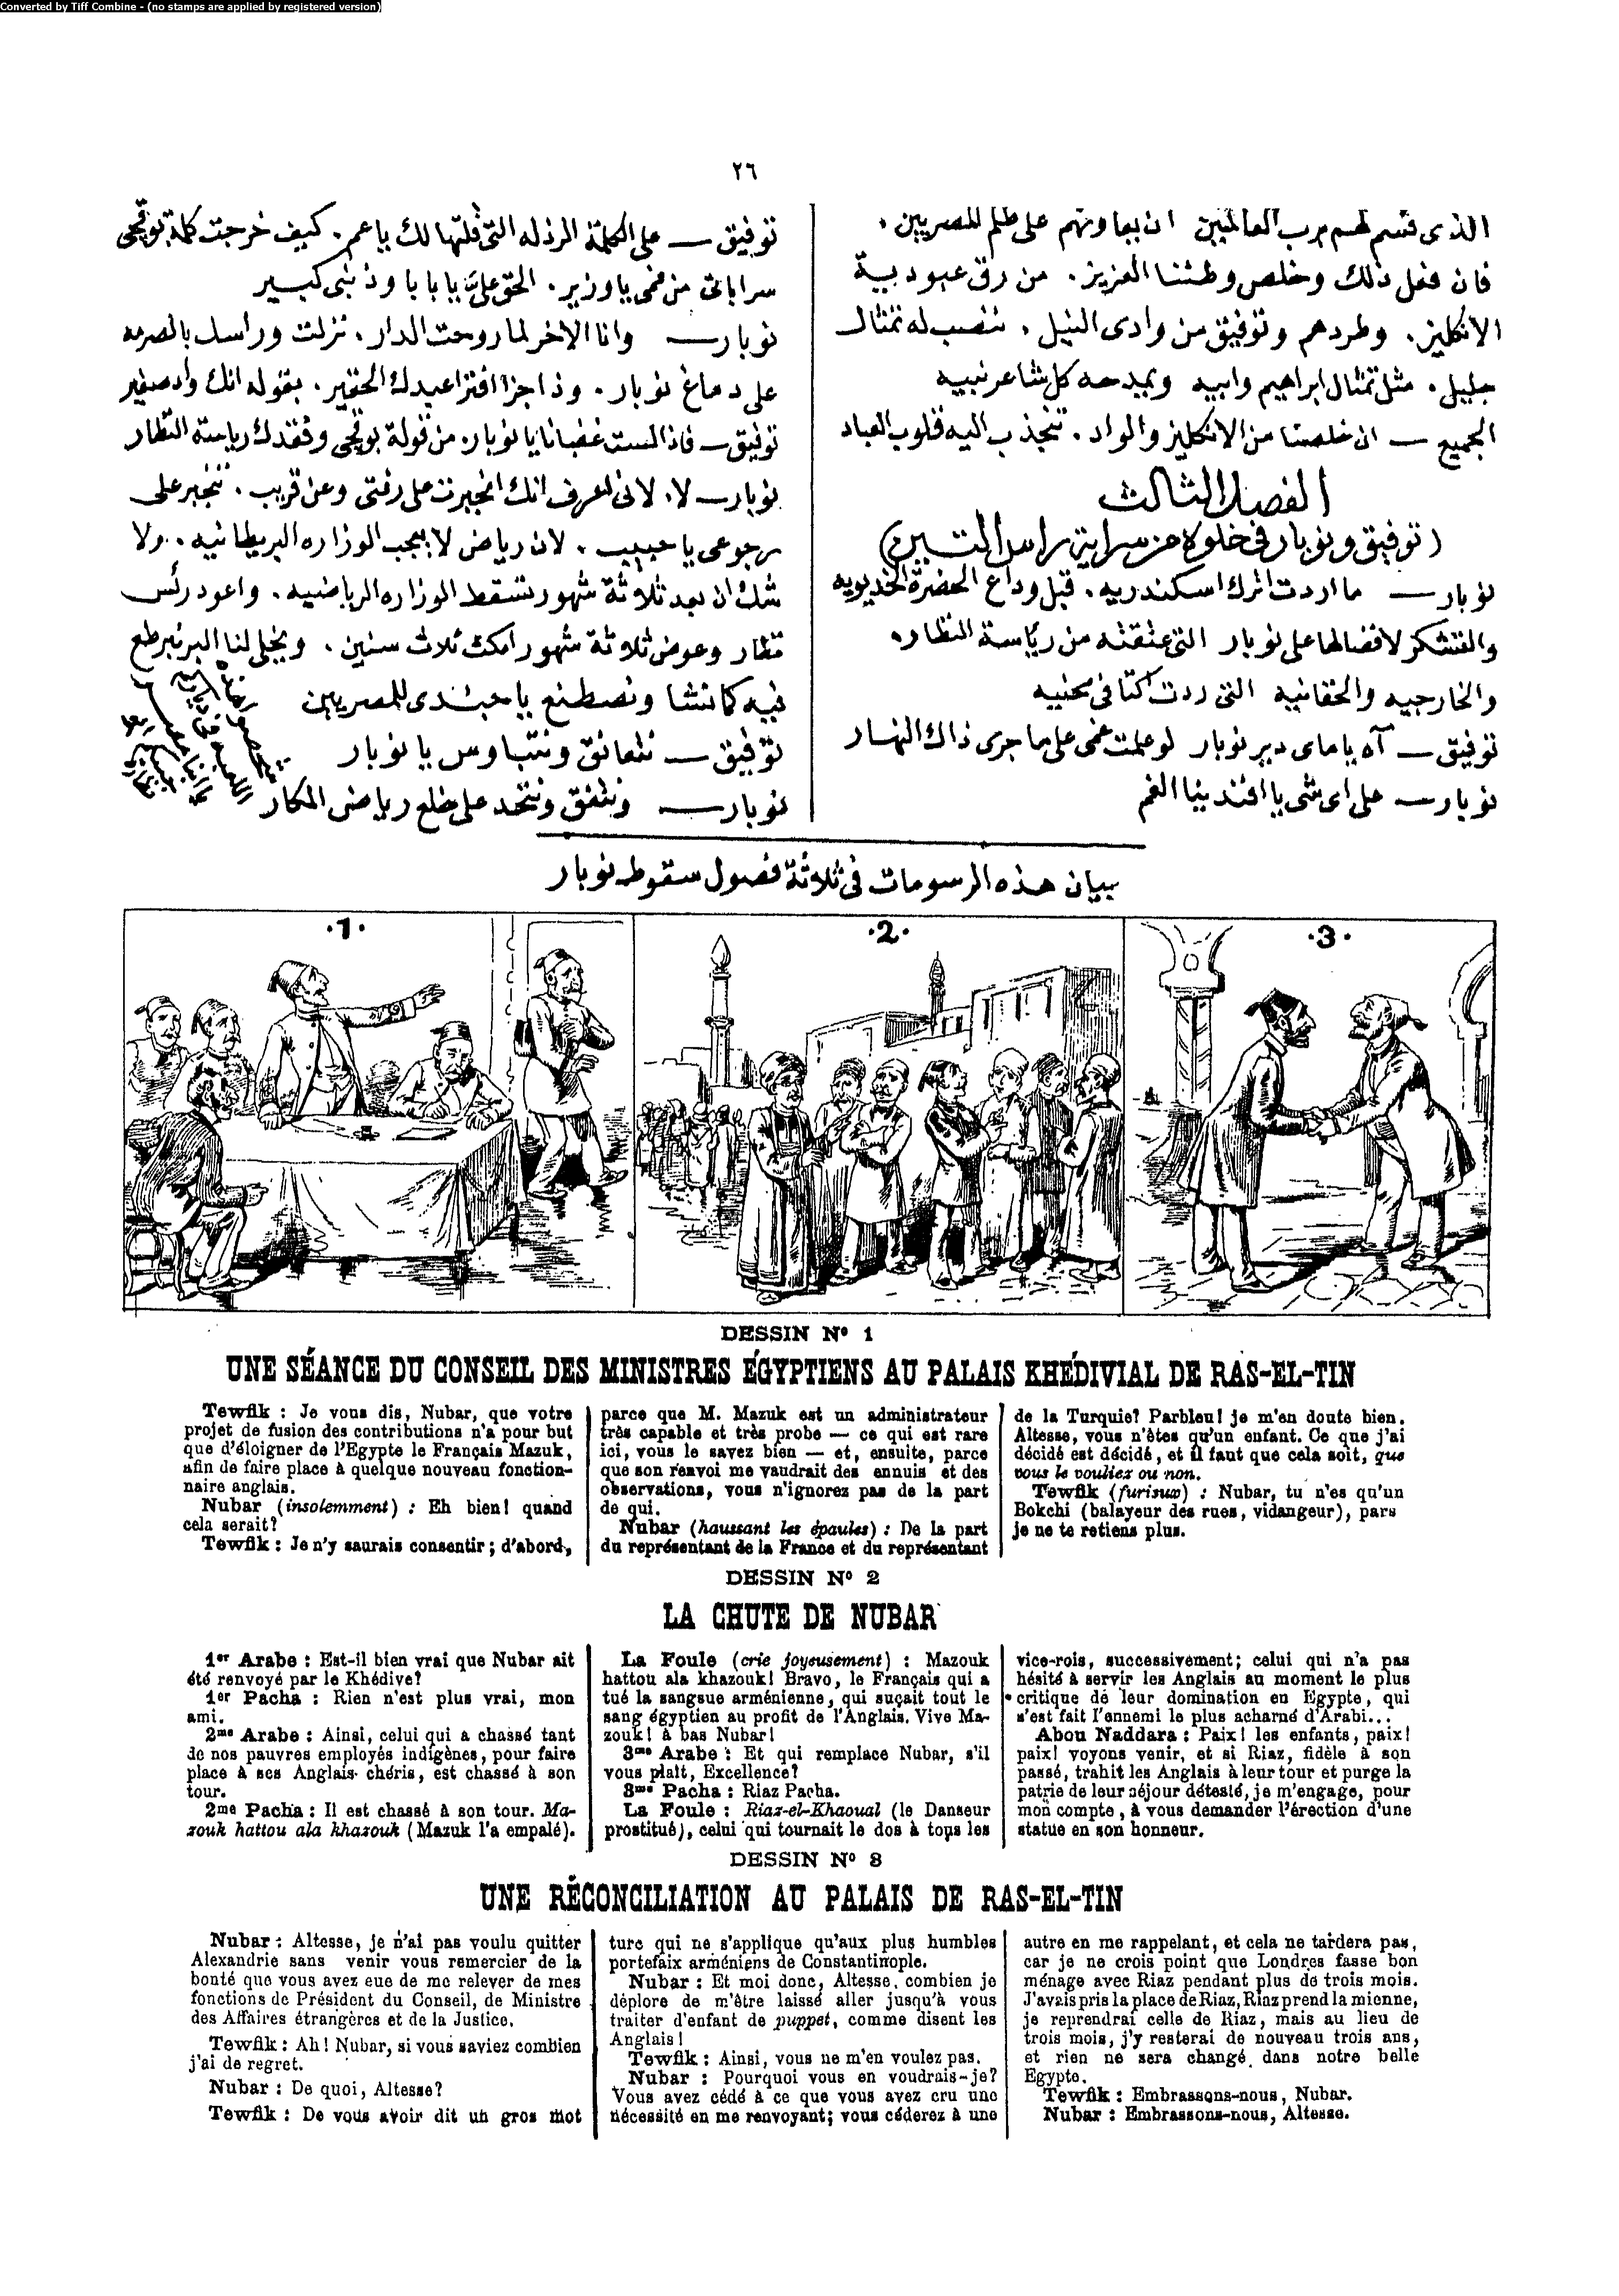 Converted by Tiff Combine - (no stamps are applied by registered version)
٢٦
الذى قسم لهم رب العالمين ان يعاونهم على ظلم المصريين.
فان فعل ذلك وخلص وطننا العزيز. من رق عبودية
الانكليز. وطردهم وتوفيق من وادى النيل. ننصب له تمثال
جليل. مثل تمثال ابراهيم وابيه ويمدحه كل شاعر نبيه
الجميع — ان خلصنا من الانكليز والواد. تنجذب اليه قلوب العباد
الفصل الثالث
(توفيق ونوبار فى خلوة من سراية راس التين)
نوبار — ما اردت اترك اسكندريه. قبل وداع الحضرة الخديويه
والتشكر لافضالها على نوبار التى عتقته من رياسة النظاره
والخارجيه والحقانيه التى ردت
توفيق — آه يا ماى دير نوبار لو علمت غمى على ما جرى ذاك النهار
نوبار — على اى شى يا افندينا الغم
توفيق — على الكلمة الرذله التى قلتها لك يا عم. كيف خرجت كلمة بوقجى
سراباتى من فمى يا وزير. الحق علىّ يا بابا وذنبى كبير
نوبار — وانا الاخر لما روحت الدار. نزلت وراسل بالصرمه
على دماغ نوبار. وذا جزا افترا عبدك الحقير. بقوله انك واد صغير
توفيق — فاذا لست غضبانا يا نوبار. من قولة بوقجى وفقدك رياسة النظار
نوبار — لا. لانى اعرف انك انجبرت على رفتى وعن قريب. تنجبر على
رجوعى يا حبيب. لان رياض لا يعجب الوزاره البريطانيه. ولا
شك ان بعد ثلاثة شهور تسقط الوزاره الرياضيه. واعود رئس
نظار وعوض ثلاثة شهور امكث ثلاث سنين. ويخلى لنا البر نبرطع
فيه كما نشا ونصطنع يا حبندى للمصريين
توفيق — نتعانق ونتباوس يا نوبار
نوبار — ونتفق ونتحد على خلع رياض المكار
بيان هذه الرسومات فى ثلاثة فصول سقوط نوبار
·1·
·2·
·3·
DESSIN Nº 1
UNE SÉANCE DU CONSEIL DES MINISTRES ÉGYPTIENS AU PALAIS KHÉDIVIAL DE RAS-EL-TIN
Tewfik : Je vous dis, Nubar, que votre
projet de fusion des contributions n'a pour but
que d'éloigner de l'Egypte le Français Mazuk,
afin de faire place à quelque nouveau fonction-
naire anglais.
Nubar (insolemment) : Eh bien! quand
cela serait?
Tewfik : Je n'y saurais consentir; d'abord,
parce que M. Mazuk est un administrateur
très capable et très probe — ce qui est rare
ici, vous le savez bien — et, ensuite, parce
que son renvoi me vaudrait des ennuis et des
observations, vous n'ignorez pas de la part
de qui.
Nubar (haussant les épaules) : De la part
du représentant de la France et du représentant
de la Turquie? Parbleu! je m'en doute bien.
Altesse, vous n'êtes qu'un enfant. Ce que j'ai
décidé est décidé, et il faut que cela soit, que
vous le vouliez ou non.
Tewfik (furieux) : Nubar, tu n'es qu'un
Bokchi (balayeur des rues, vidangeur), pars
je ne te retiens plus.
DESSIN Nº 2
LA CHUTE DE NUBAR
1er Arabe : Est-il bien vrai que Nubar ait
été renvoyé par le Khédive?
1er Pacha : Rien n'est plus vrai, mon
ami.
2me Arabe : Ainsi, celui qui a chassé tant
de nos pauvres employés indigènes, pour faire
place à ses Anglais chéris, est chassé à son
tour.
2me Pacha : Il est chassé à son tour. Ma-
zouk hattou ala khazouk (Mazuk l'a empalé).
La Foule (crie joyeusement) : Mazouk
hattou ala khazouk! Bravo, le Français qui a
tué la sangsue arménienne, qui suçait tout le
sang égyptien au profit de l'Anglais. Vive Ma-
zouk! à bas Nubar!
3me Arabe : Et qui remplace Nubar, s'il
vous plaît, Excellence?
3me Pacha : Riaz Pacha.
La Foule : Riaz-el-Khaoual (le Danseur
prostitué), celui qui tournait le dos à tous les
vice-rois, successivement; celui qui n'a pas
hésité à servir les Anglais au moment le plus
critique de leur domination en Egypte, qui
s'est fait l'ennemi le plus acharné d'Arabi...
Abou Naddara : Paix! les enfants, paix!
paix! voyons venir, et si Riaz, fidèle à son
passé, trahit les Anglais à leur tour et purge la
patrie de leur séjour détesté, je m'engage, pour
mon compte, à vous demander l'érection d'une
statue en son honneur.
DESSIN Nº 3
UNE RÉCONCILIATION AU PALAIS DE RAS-EL-TIN
Nubar : Altesse, je n'ai pas voulu quitter
Alexandrie sans venir vous remercier de la
bonté que vous avez eue de me relever de mes
fonctions de Président du Conseil, de Ministre
des Affaires étrangères et de la Justice.
Tewfik : Ah! Nubar, si vous saviez combien
j'ai de regret.
Nubar : De quoi, Altesse?
Tewfik : De vous avoir dit un gros mot
turc qui ne s'applique qu'aux plus humbles
portefaix arméniens de Constantinople.
Nubar : Et moi donc, Altesse, combien je
déplore de m'être laissé aller jusqu'à vous
traiter d'enfant de puppet, comme disent les
Anglais!
Tewfik : Ainsi, vous ne m'en voulez pas.
Nubar : Pourquoi vous en voudrais-je?
Vous avez cédé à ce que vous avez cru une
nécessité en me renvoyant; vous céderez à une
autre en me rappelant, et cela ne tardera pas,
car je ne crois point que Londres fasse bon
ménage avec Riaz pendant plus de trois mois.
J'avais pris la place de Riaz, Riaz prend la mienne,
je reprendrai celle de Riaz, mais au lieu de
trois mois, j'y resterai de nouveau trois ans,
et rien ne sera changé dans notre belle
Egypte.
Tewfik : Embrassons-nous, Nubar.
Nubar : Embrassons-nous, Altesse.